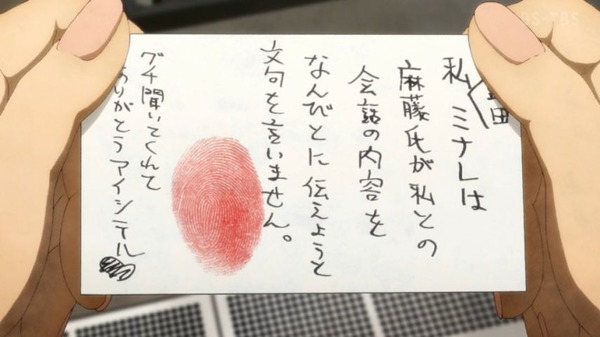 私ミナレは
麻藤氏が私との
会話の内容を
なんぴとに伝えようと
文句を言いません。
グチ聞いてくれて
ありがとうアイシテル
BS-TBS